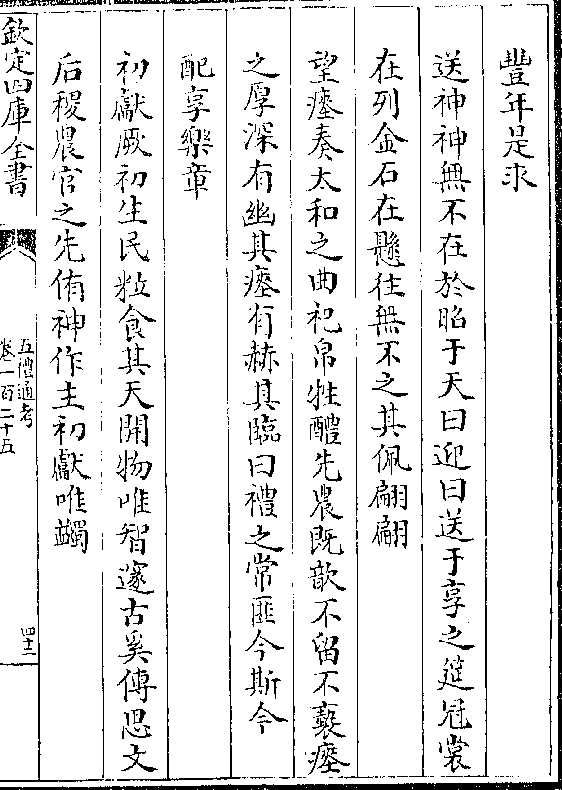 豐年是求
送神神無不在於昭于天曰迎曰送于享之筵冠裳
在列金石在懸往無不之其佩翩翩
望瘞奏太和之曲祀帛牲醴先農既歆不留不褻瘞
之厚深有幽其瘞有赫其臨曰禮之常匪今斯今
配享樂章
初獻厥初生民粒食其天開物唯智邃古奚傳思文
后稷農官之先侑神作主初獻唯蠲
欽定四庫全書
五禮通考
卷一百二十五
四十二